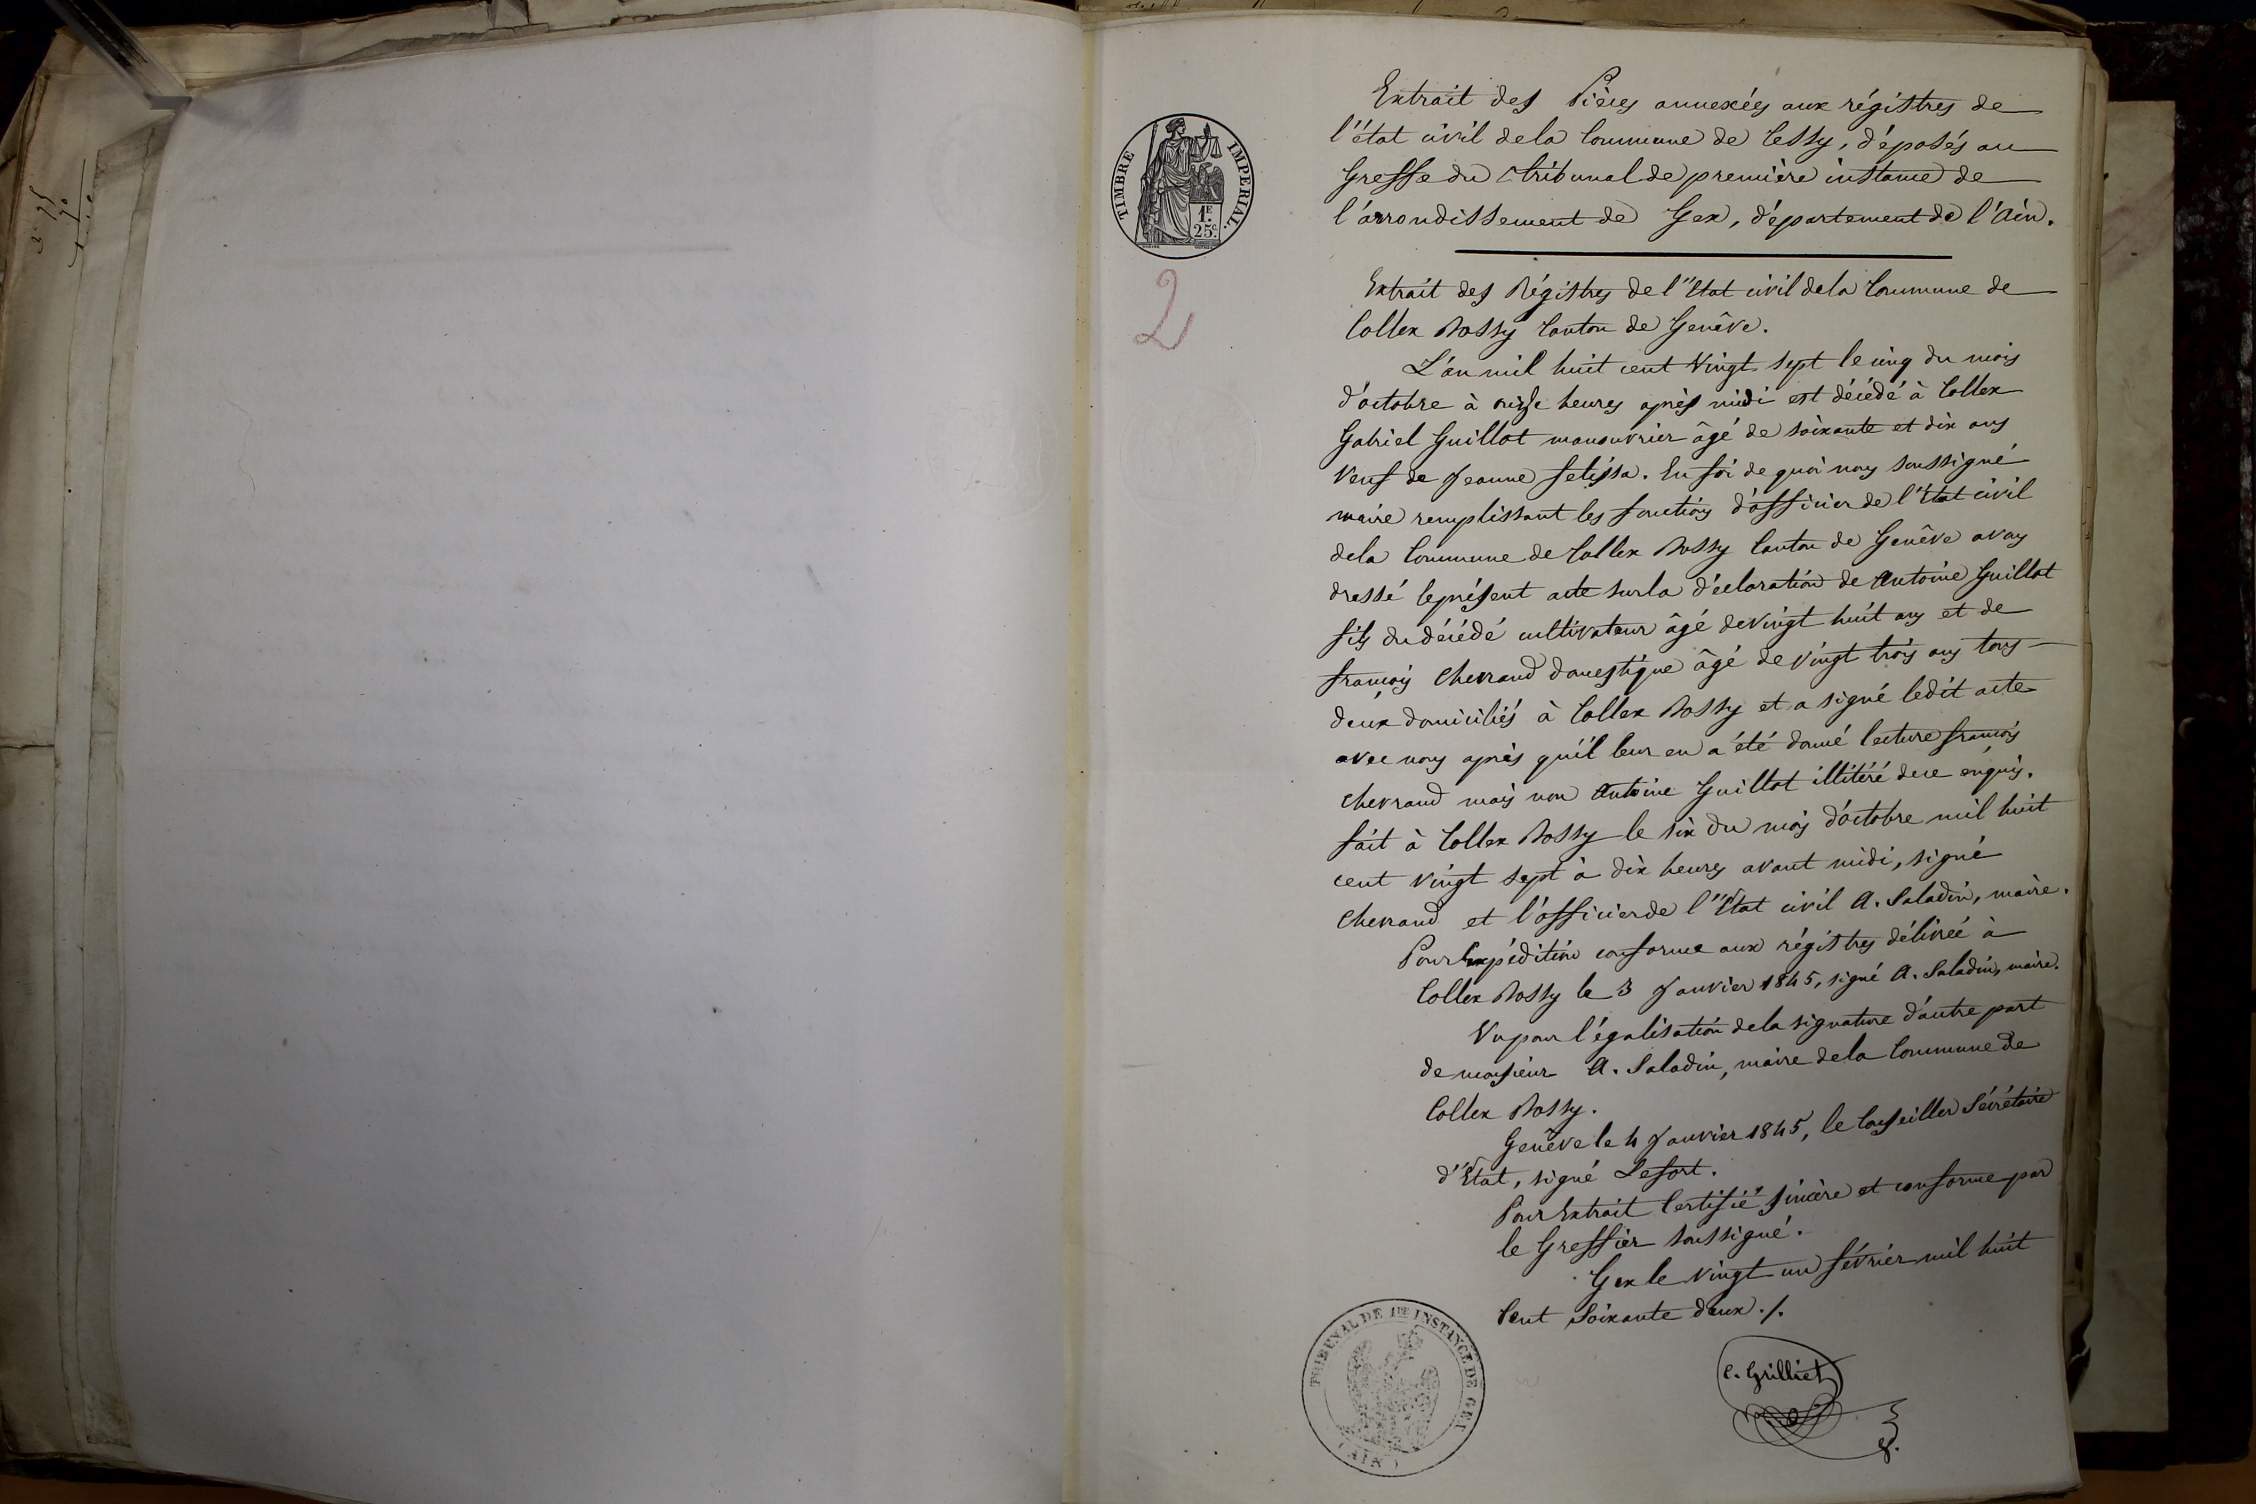 TIMBRE IMPERIAL.
1.E
25.c
2
Extrait des Pièces annexées aux régistres de
l'état civil de la Commune de Cessy, déposés au
Greffe du tribunal de première instance de
l'arrondissement de Gex, département de l'Ain.
Extrait des Régistres de l'Etat civil de la Commune de
Collex Bossy Canton de Genêve.
L'an mil huit cent vingt sept le cinq du mois
d'octobre à onze heures après midi est décédé à Collex
Gabriel Guillot manouvrier âgé de soixante et dix ans
veuf de Jeanne felissa. En foi de quoi nous soussigné
maire remplissant les fonctions d'officier de l'Etat civil
de la Commune de Collex Bossy Canton de Genêve avons
dressé le présent acte sur la déclaration de Antoine Guillot
fils du décédé cultivateur âgé de vingt huit ans et de
françois Chevrand domestique âgé de vingt trois ans tous
deux domiciliés à Collex Bossy et a signé ledit acte
avec nous après qu'il leur en a été donné lecture françois
Chevrand mais non Antoine Guillot illitéré de ce enquis.
fait à Collex Bossy le six du mois d'octobre mil huit
cent vingt sept à dix heures avant midi, signé
Chevrand et l'officier de l'Etat civil A. Saladin, maire.
Pour Expédition conforme aux régistres délivrée à
Collex Bossy le 3 Janvier 1845, signé A. Saladin, maire.
Vu pour légalisation de la signature d'autre part
de monsieur A. Saladin, maire de la Commune de
Collex Bossy.
Genêve le 4 Janvier 1845, le Conseiller Sécrétaire
d'Etat, signé Lefort.
Pour Extrait Certifié sincère et conforme par
le Greffier soussigné.
Gex le vingt un février mil huit
Cent soixante deux ./.
C. Grilliet
TRIBUNAL DE 1RE INSTANCE DE GEX
(AIN)